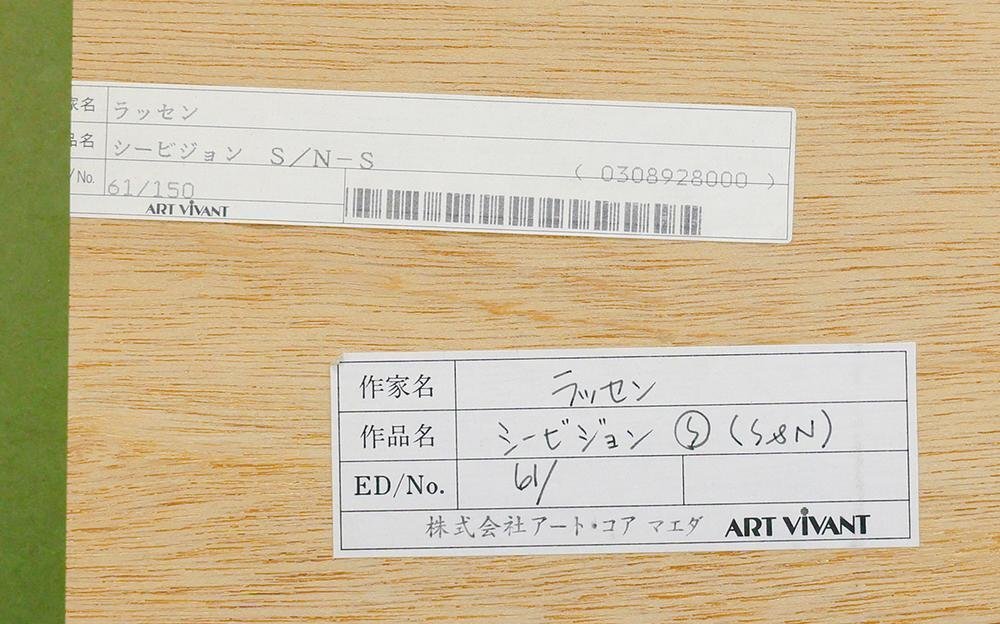 家名 ラッセン
品名 シービジョン S/N-S
( 0308928000 )
/No. 61/150
ART VIVANT
作家名 ラッセン
作品名 シービジョン Ⓢ (S&N)
ED/No. 61/
株式会社アート・コア マエダ ART VIVANT